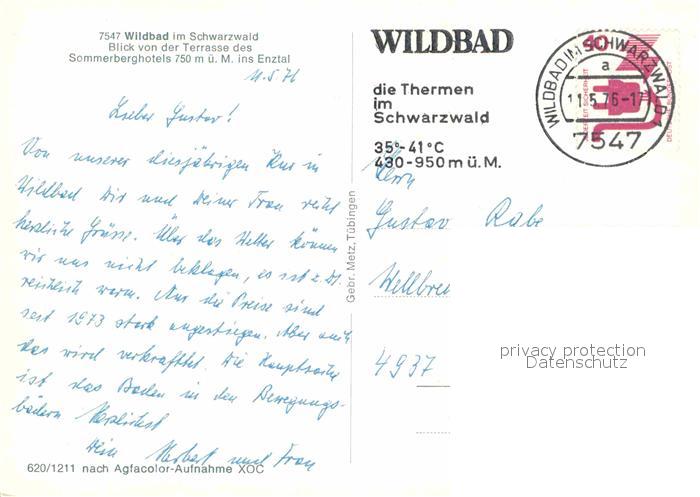 7547 Wildbad im Schwarzwald
Blick von der Terrasse des
Sommerberghotels 750 m ü. M. ins Enztal
11.5.76
Lieber Gustav!
Von unserer diesjährigen Kur in
Wildbad Dir und Deiner Frau recht
herzliche Grüsse. Über das Wetter können
wir uns nicht beklagen, es ist z. Zt.
reichlich warm. Nur die Preise sind
seit 1973 stark angestiegen. Aber auch
das wird verkraftet. Die Hauptsache
ist das Baden in den Bewegungs-
bädern Herzlichst
Dein Herbert und Frau
620/1211 nach Agfacolor-Aufnahme XOC
Gebr. Metz, Tübingen
WILDBAD
die Thermen
im
Schwarzwald
35°-41°C
430-950 m ü. M.
WILDBAD IM SCHWARZWALD 1
a
11.5.76-17
7547
40
JEDERZEIT SICHERHEIT
Herrn
Gustav Rabe
Wellbreu
4937
privacy protection
Datenschutz